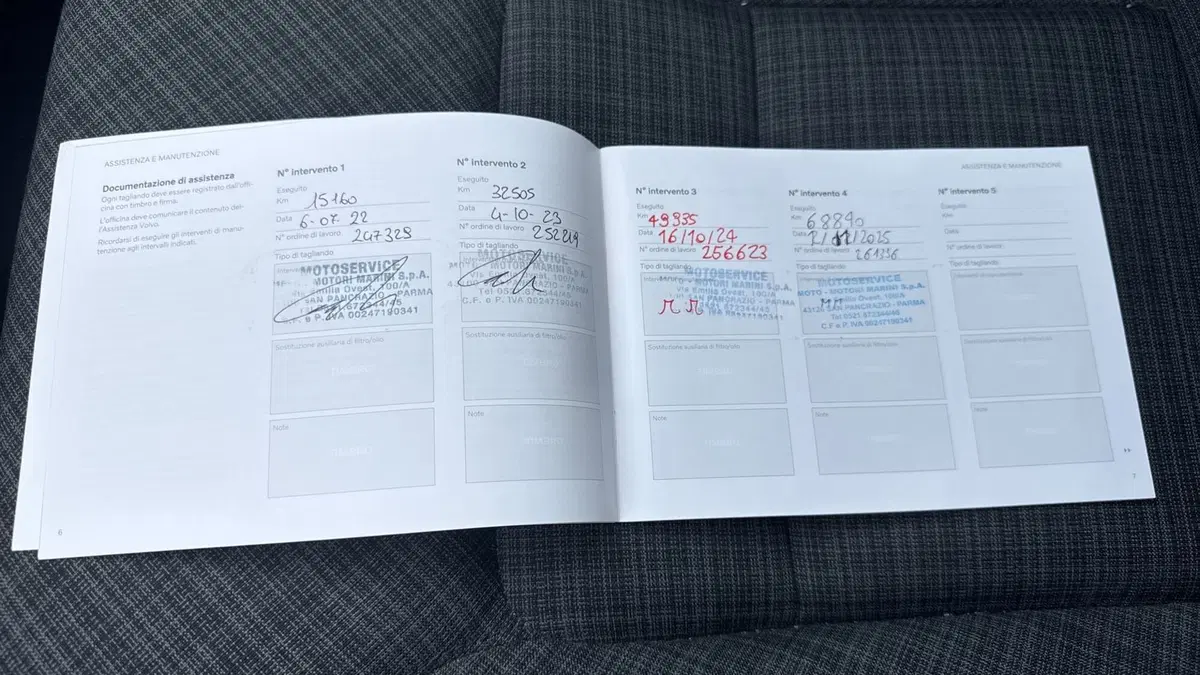 ASSISTENZA E MANUTENZIONE
Documentazione di assistenza
Ogni tagliando deve essere registrato dall'offi-
cina con timbro e firma.
L'officina deve comunicare il contenuto del-
l'Assistenza Volvo.
Ricordarsi di eseguire gli interventi di manu-
tenzione agli intervalli indicati.
6
N° intervento 1
Eseguito
Km 15160
Data 6-07-22
N° ordine di lavoro 247329
Tipo di tagliando
MOTOSERVICE
MOTORI MARINI S.p.A.
Emilia Ovest, 100/A
SAN PANCRAZIO - PARMA
C.F. e P. IVA 00247190341
Sostituzione ausiliaria di filtro/olio
Note
N° intervento 2
Eseguito
Km 32505
Data 4-10-23
N° ordine di lavoro 252219
Tipo di tagliando
MOTOSERVICE
MOTORI MARINI S.p.A.
Via Emilia Ovest, 100/A
SAN PANCRAZIO - PARMA
Tel 0521.672344/45
C.F. e P. IVA 00247190341
Sostituzione ausiliaria di filtro/olio
Note
ASSISTENZA E MANUTENZIONE
N° intervento 3
Eseguito
Km 49935
Data 16/10/24
N° ordine di lavoro 256623
Tipo di tagliando
MOTOSERVICE
MOTORI MARINI S.p.A.
Via Emilia Ovest, 100/A
SAN PANCRAZIO - PARMA
IVA 00247190341
Sostituzione ausiliaria di filtro/olio
Note
N° intervento 4
Eseguito
Km 68890
Data /2025
N° ordine di lavoro
Tipo di tagliando
MOTOSERVICE
MOTO - MOTORI MARINI S.p.A.
Emilia Ovest, 100/A
43126 SAN PANCRAZIO - PARMA
Tel 0521.672344/45
C.F e P. IVA 00247190341
Sostituzione ausiliaria di filtro/olio
Note
N° intervento 5
Eseguito
Km
Data
N° ordine di lavoro
Tipo di tagliando
Sostituzione ausiliaria di filtro/olio
Note
7